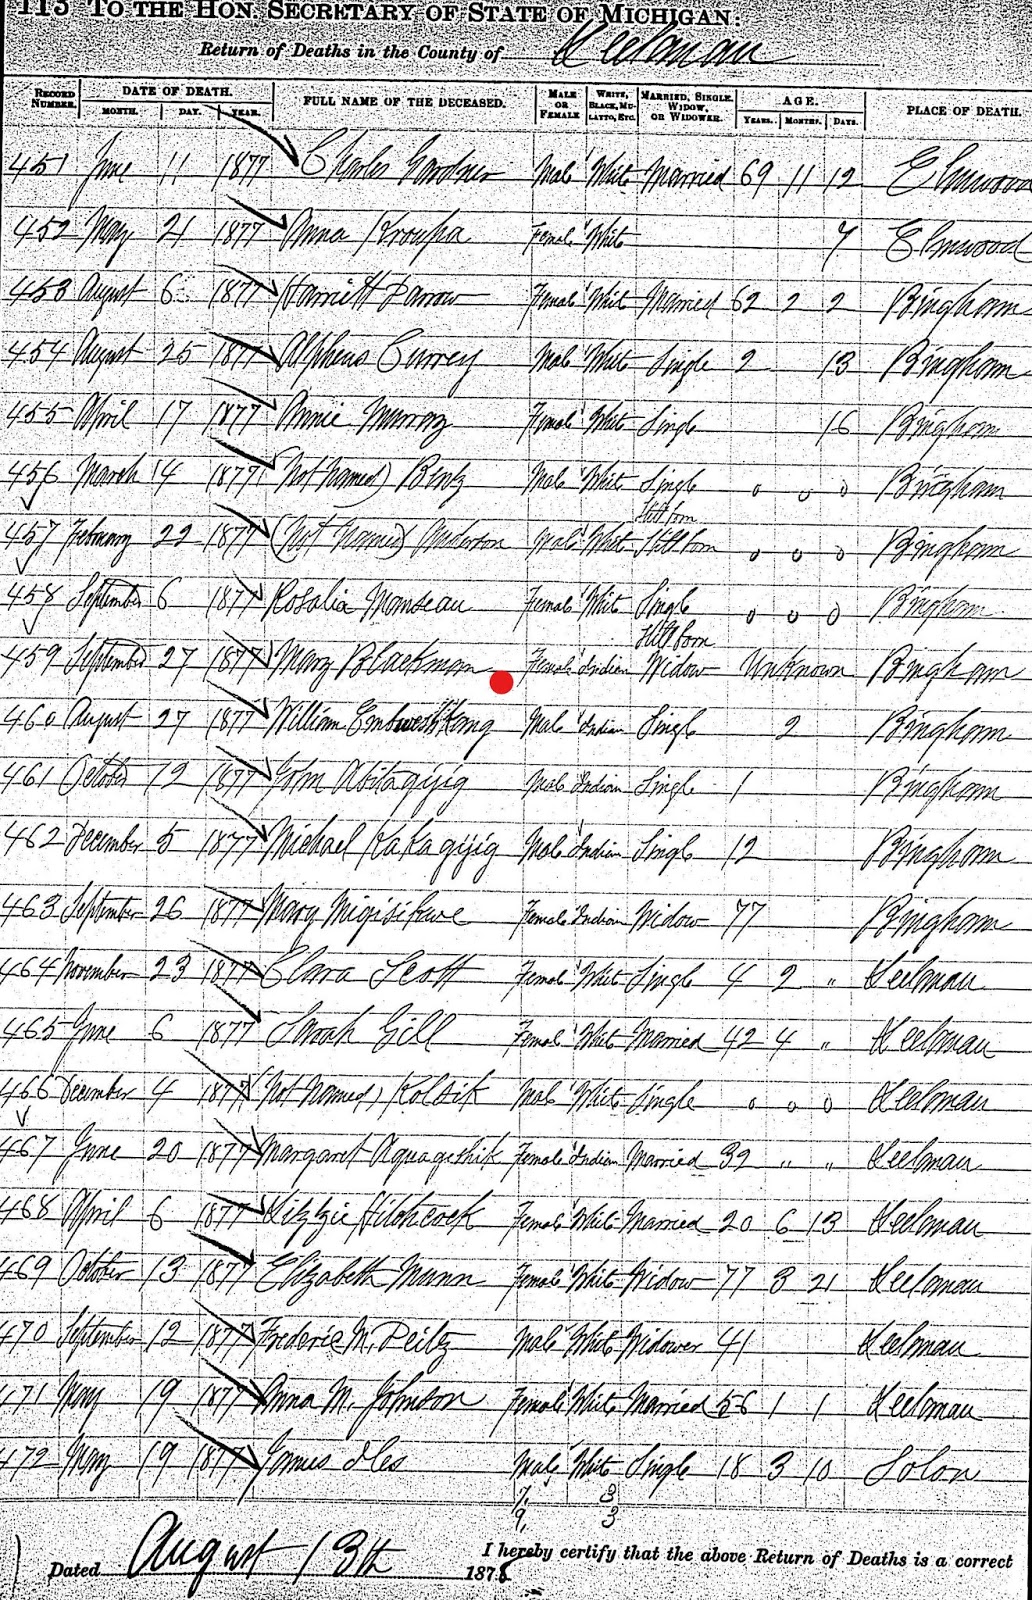 113 TO THE HON. SECRETARY OF STATE OF MICHIGAN:
Return of Deaths in the County of Leelanau
RECORD NUMBER. DATE OF DEATH. MONTH. DAY. YEAR. FULL NAME OF THE DECEASED. MALE OR FEMALE WHITE, BLACK, MULATTO, ETC. MARRIED, SINGLE, WIDOW, OR WIDOWER. AGE. YEARS. MONTHS. DAYS. PLACE OF DEATH.
451 June 11 1877 Charles Gardner Male White Married 69 11 12 Elmwood
452 May 21 1877 Anna Kroupa Female White 7 Elmwood
453 August 6 1877 Harriett Darrow Female White Married 62 2 2 Bingham
454 August 25 1877 Alpheus Currey Male White Single 2 13 Bingham
455 April 17 1877 Annie Murray Female White Single 16 Bingham
456 March 14 1877 (Not Named) Bentz Male White Single 0 0 0 Bingham
Still born
457 February 22 1877 (Not Named) Anderson Male White Still born 0 0 0 Bingham
458 September 6 1877 Rosalia Manseau Female White Single 0 0 0 Bingham
Still born
459 September 27 1877 Mary Blackman Female Indian Widow Unknown Bingham
460 August 27 1877 William Male Indian Single 2 Bingham
461 October 12 1877 John Abitagijig Male Indian Single 1 Bingham
462 December 5 1877 Michael Kakagijig Male Indian Single 12 Bingham
463 September 26 1877 Mary Female Indian Widow 77 Bingham
464 November 23 1877 Clara Scott Female White Single 4 2 " Leelanau
465 June 6 1877 Sarah Gill Female White Married 42 4 " Leelanau
466 December 4 1877 (Not Named) Kolsik Male White Single 0 0 0 Leelanau
467 June 20 1877 Margaret Aquageshik Female Indian Married 39 " " Leelanau
468 April 6 1877 Lizzie Hitchcock Female White Married 20 6 13 Leelanau
469 October 13 1877 Elizabeth Munn Female White Widow 77 3 21 Leelanau
470 September 12 1877 Frederic M. Deitz Male White Widower 41 Leelanau
471 May 19 1877 Anna M. Johnson Female White Married 56 1 1 Leelanau
472 May 19 1877 James Iles Male White Single 18 3 10 Solon
7, 3
9, 3
Dated August 13th 1878 I hereby certify that the above Return of Deaths is a correct